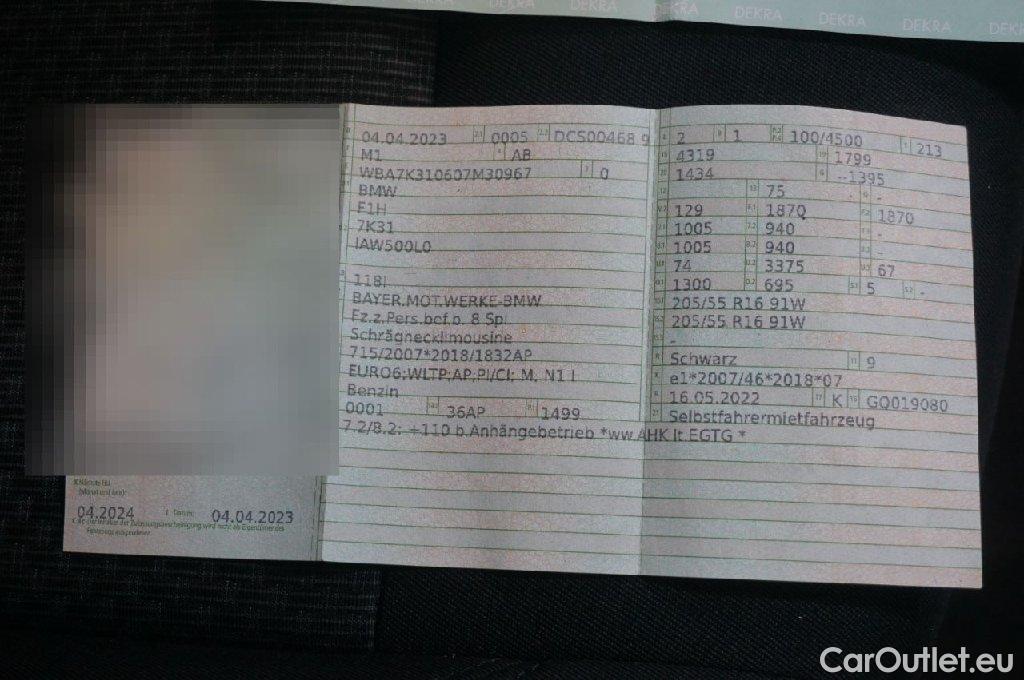 DEKRA DEKRA DEKRA DEKRA DEKRA
04.04.2023 2.1 0005 2.2 DCS00468 9
M1 4 AB
WBA7K310607M30967 3 0
BMW
F1H
7K31
IAW500L0
118I
BAYER.MOT.WERKE-BMW
Fz.z.Pers.bef.b. 8 Spl
Schräghecklimousine
715/2007*2018/1832AP
EURO6;WLTP;AP;PI/CI; M, N1 I
Benzin
0001 36AP 1499
7.2/8.2: +110 b.Anhängebetrieb *ww.AHK lt.EGTG *
2 1 100/4500 213
4319 1799
1434 --1395
75 -
129 1870 1870
1005 940 -
1005 940 -
74 3375 67
1300 695 5 -
205/55 R16 91W
205/55 R16 91W
-
Schwarz 11 9
e1*2007/46*2018*07
16.05.2022 17 K 16 GQ019080
Selbstfahrermietfahrzeug
(Monat und Jahr)
04.2024 I Datum: 04.04.2023
CarOutlet.eu